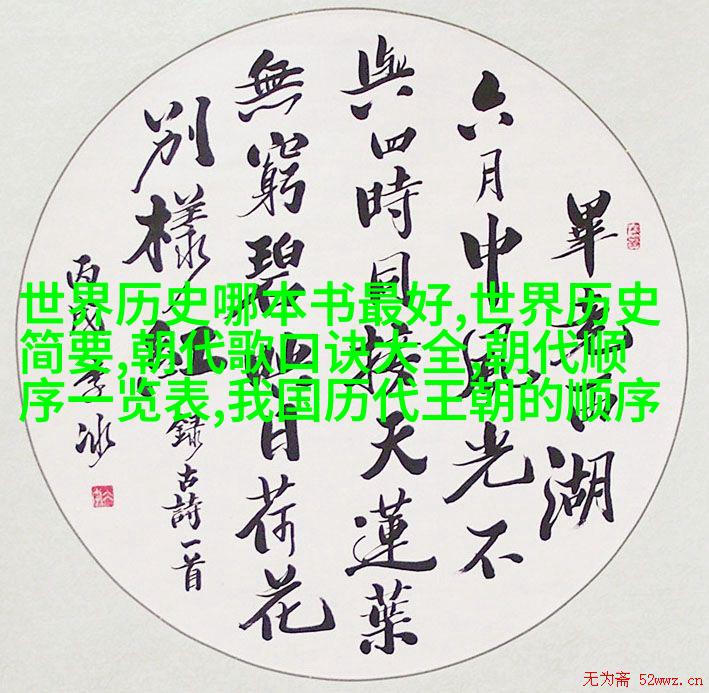 世界历史哪本书最好,世界历史
简要,朝代歌口诀大全,朝代顺
序一览表,我国历代王朝的顺序
畢竟西湖
六月中風光不
與四時同接天蓮葉
無窮碧映日荷花
別樣紅
錄古詩一首
丙戌冰
无为斋 52wwz.cn